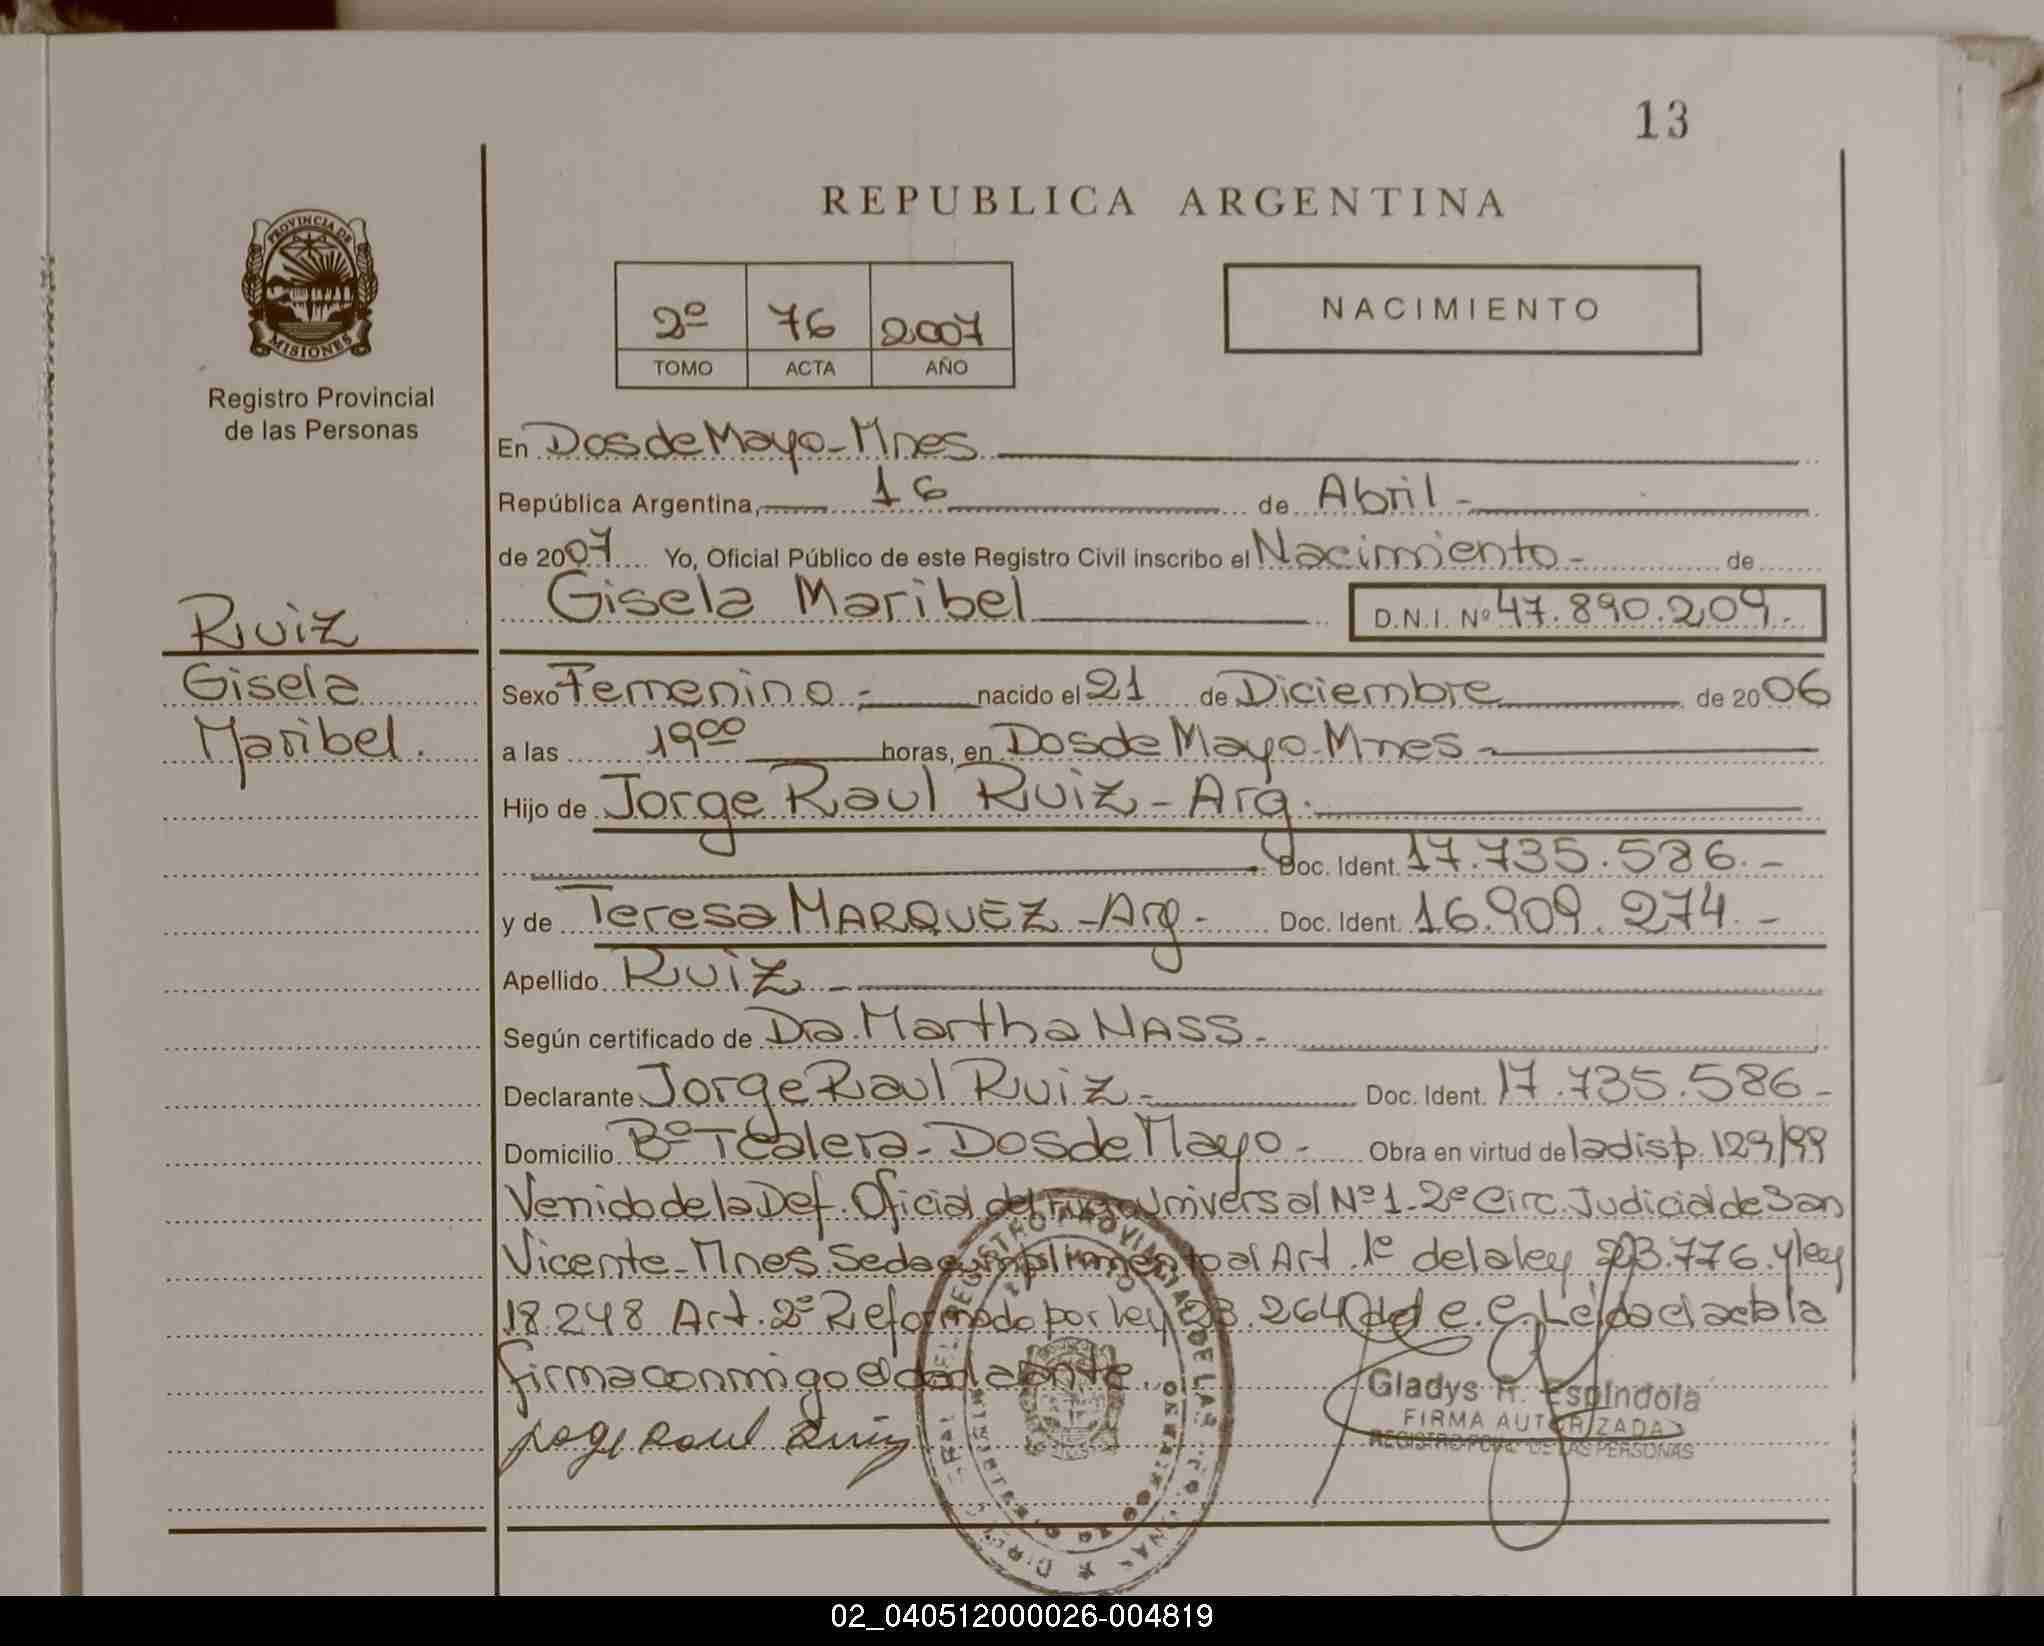 13
REPUBLICA ARGENTINA
PROVINCIA DE
MISIONES
Registro Provincial
de las Personas
2º 76 2007
TOMO ACTA AÑO
NACIMIENTO
En Dos de Mayo - Mnes
República Argentina, 16 de Abril -
de 2007 Yo, Oficial Público de este Registro Civil inscribo el Nacimiento - de
Gisela Maribel D.N.I. Nº 47.890.209.-
Ruiz
Gisela
Maribel.
Sexo Femenino - nacido el 21 de Diciembre de 2006
a las 19⁰⁰ horas, en Dos de Mayo - Mnes -
Hijo de Jorge Raul Ruiz - Arg.
Doc. Ident. 17.735.586.-
y de Teresa MARQUEZ - Arg - Doc. Ident. 16.909.274.-
Apellido Ruiz -
Según certificado de Dra. Martha NASS -
Declarante Jorge Raul Ruiz - Doc. Ident. 17.735.586 -
Domicilio Bº Tealera - Dos de Mayo - Obra en virtud de la disp. 129/99
Venido de la Def. Oficial del Fuero Universal Nº 1 - 2º Circ. Judicial de San
Vicente - Mnes. Se da cumplimento al Art. 1º de la ley 23.776. y ley
18.248 Art. 2º Reformado por ley 23.264 del c. c. Leida el acta la
firma conmigo el declarante.
Jorge Raul Ruiz
Gladys R. Espíndola
FIRMA AUTORIZADA
REGISTRO PCIAL DE LAS PERSONAS
02_040512000026-004819